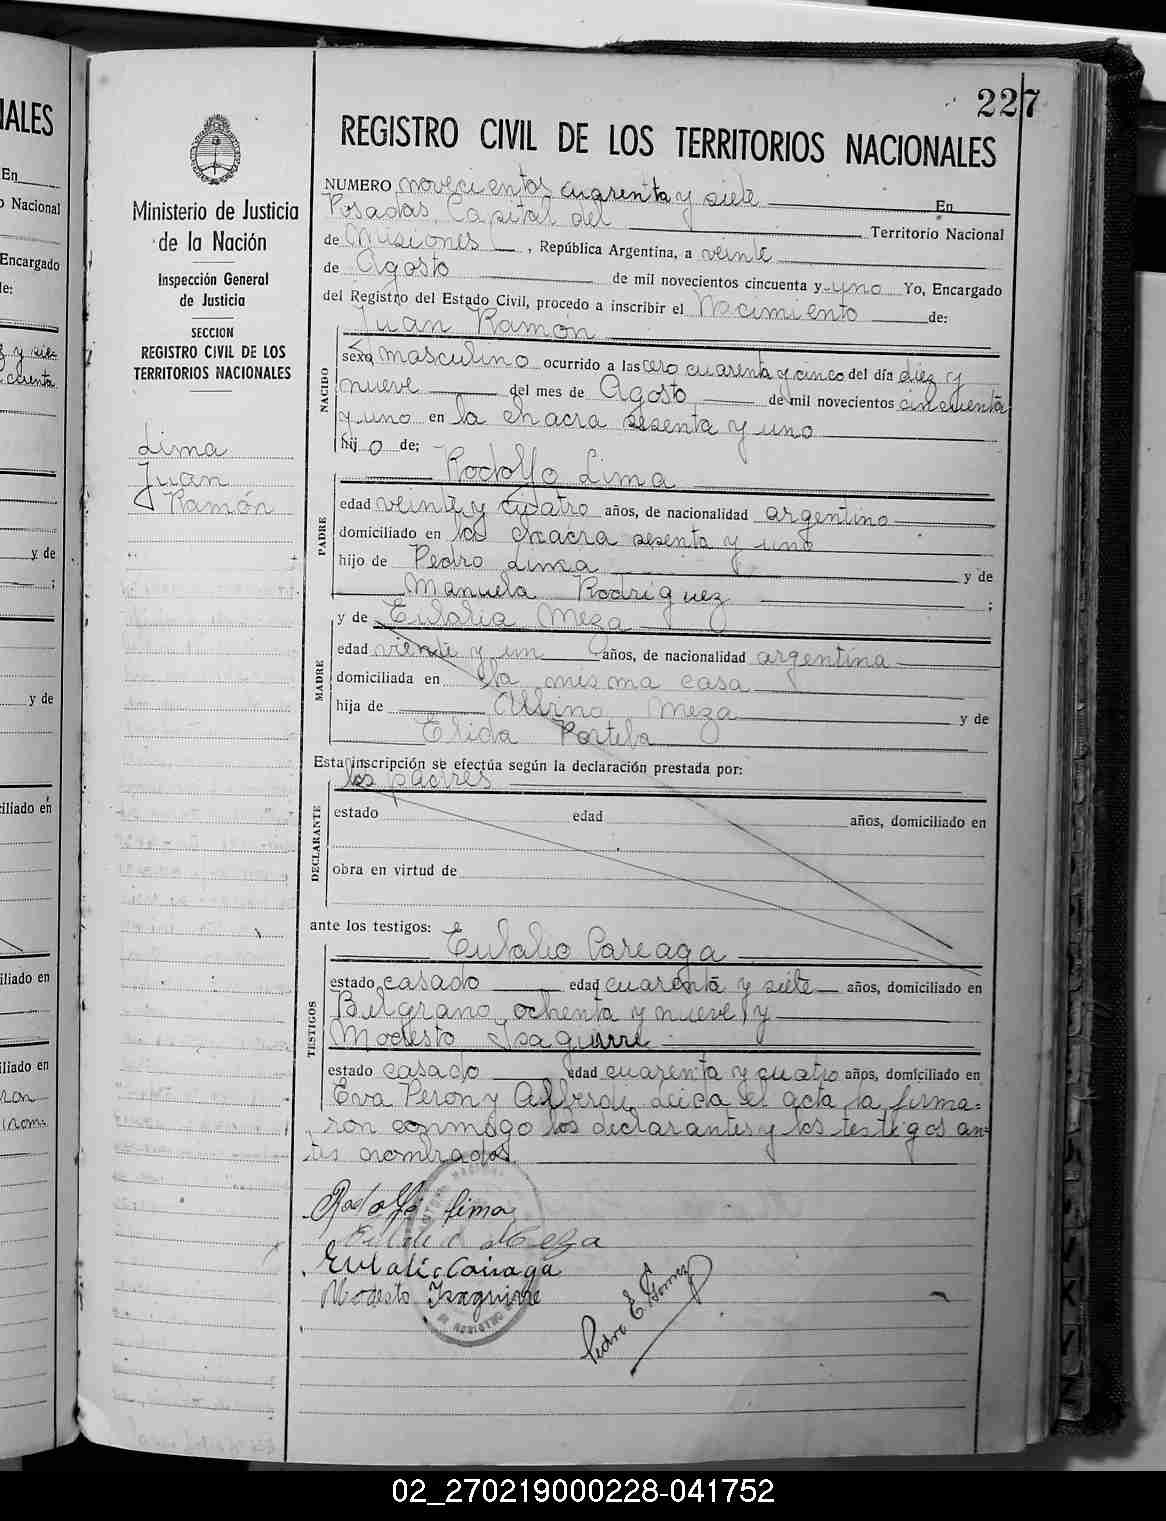 227
REGISTRO CIVIL DE LOS TERRITORIOS NACIONALES
Ministerio de Justicia
de la Nación
Inspección General
de Justicia
SECCION
REGISTRO CIVIL DE LOS
TERRITORIOS NACIONALES
Lima
Juan
Ramón
NUMERO novecientos cuarenta y siete En
Posadas, Capital del Territorio Nacional
de Misiones, República Argentina, a veinte
de Agosto de mil novecientos cincuenta y uno Yo, Encargado
del Registro del Estado Civil, procedo a inscribir el Nacimiento de:
Juan Ramón
NACIDO
sexo masculino ocurrido a las cero cuarenta y cinco del día diez y
nueve del mes de Agosto de mil novecientos cincuenta
y uno en la chacra sesenta y uno
hijo de:
Rodolfo Lima
PADRE
edad veinte y cuatro años, de nacionalidad argentino
domiciliado en la chacra sesenta y uno
hijo de Pedro Lima y de
Manuela Rodriguez ;
y de Eulalia Meza
MADRE
edad viente y un años, de nacionalidad argentina
domiciliada en la misma casa
hija de Albino Meza y de
Elida Portela
Esta inscripción se efectúa según la declaración prestada por:
los padres
DECLARANTE
estado edad años, domiciliado en
obra en virtud de
ante los testigos:
Eulalio Careaga
TESTIGOS
estado casado edad cuarenta y siete años, domiciliado en
Belgrano ochenta y nueve y
Modesto Isaguirre
estado casado edad cuarenta y cuatro años, domiciliado en
Eva Peron y Alberdi, Leida el acta la firma=
ron conmigo los declarantes y los testigos an-
tes nombrados
Rodolfo Lima
Eulalia Meza
Eulalio Careaga
Modesto Isaguirre
Pedro E. Gomez
IALES
En
Nacional
Encargado
y de
y de
iliado en
iliado en
02_270219000228-041752